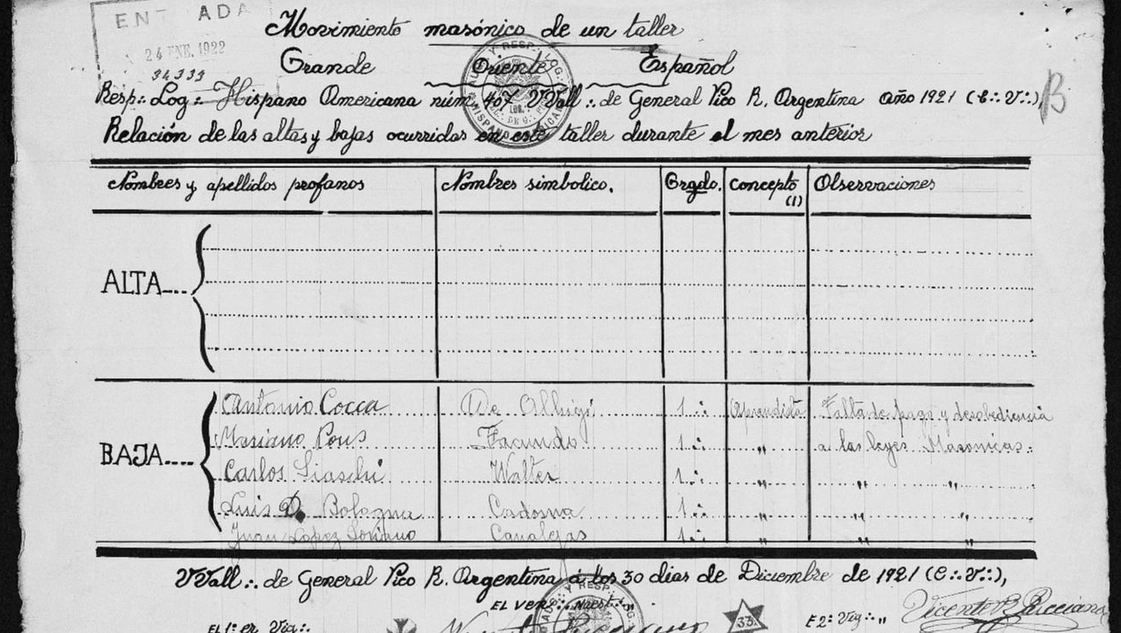 ENTRADA
24 ENE. 1922
34333
Movimiento masónico de un taller
Grande Oriente Español
Resp∴ Log∴ Hispano Americana núm. 407 VVall∴ de General Pico R. Argentina año 1921 (E∴V∴), B
Relación de las altas y bajas ocurridas en este taller durante el mes anterior
Nombres y apellidos profanos Nombres simbolico. Grado. Concepto (1) Observaciones
ALTA
Antonio Cocca 1∴ Aprendiz Falta de pago y desobediencia
Mariano Pous Facundo 1∴ „ a las leyes Masonicas∴
BAJA
Carlos Walter 1∴ „ „ „
Luis D. Bologna Cadorna 1∴ „ „ „
Juan López Soriano Canalejas 1∴ „ „ „
VVall∴ de General Pico R. Argentina á los 30 dias de Diciembre de 1921 (E∴V∴),
EL VEN∴ Maest∴
EL 1∴er Vig∴ 33 E 2∴ Vig∴